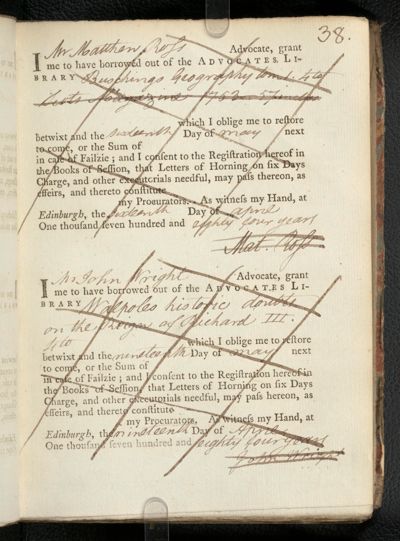 38.
I Mr Matthew Ross Advocate, grant
me to have borrowed out of the ADVOCATES LI-
BRARY Buschings Geography tom. 4to
Scots Magazine 1752-57
which I oblige me to restore
betwixt and the sixteenth Day of may next
to come, or the Sum of
in case of Failzie; and I consent to the Registration hereof in
the Books of Session, that Letters of Horning on six Days
Charge, and other executorials needful, may pass thereon, as
effeirs, and thereto constitute
my Procurators. As witness my Hand, at
Edinburgh, the sixteenth Day of april
One thousand seven hundred and eighty four years
Mat. Ross
I Mr John Wright Advocate, grant
me to have borrowed out of the ADVOCATES LI-
BRARY Walpoles historic doubts
on the Reign of Richard III.
4to which I oblige me to restore
betwixt and the nineteenth Day of may next
to come, or the Sum of
in case of Failzie; and I consent to the Registration hereof in
the Books of Session, that Letters of Horning on six Days
Charge, and other executorials needful, may pass hereon, as
effeirs, and thereto constitute
my Procurators. As witness my Hand, at
Edinburgh, the nineteenth Day of April
One thousand seven hundred and eighty four years
John Wright